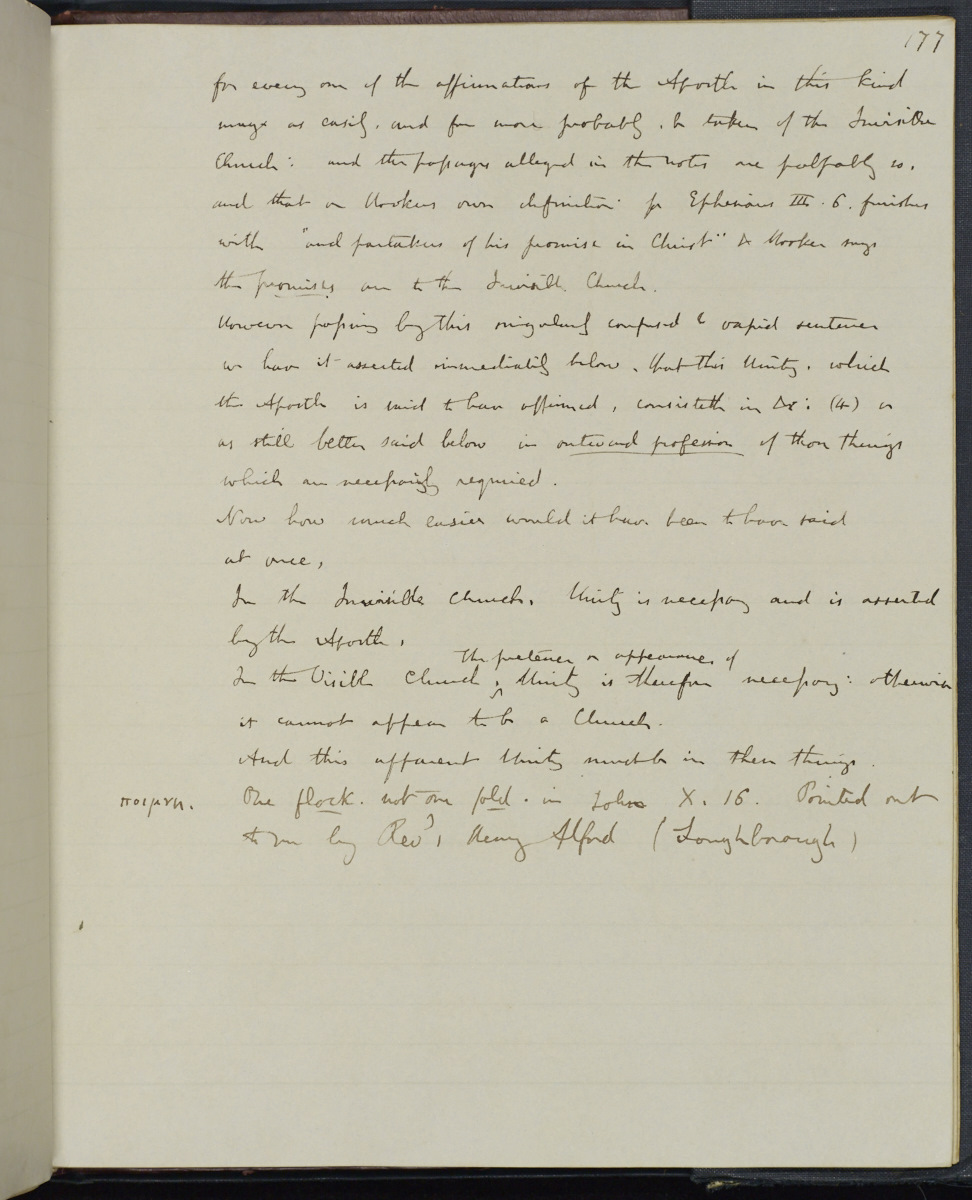 177
for every one of the affirmations of the Apostle in this kind
may as easily, and far more probably, be taken of the Invisible
Church: and the passages alleged in the notes are palpably so,
and that on Hookers own definition for Ephesians III. 6. finishes
with "and partakers of his promise in Christ" & Hooker says
the promises are to the Invisible Church.
However passing by this singularly confused & vapid sentence
we have it asserted immediately below, that this Unity, which
the Apostle is said to have affirmed, consisteth in &c: (4) or
as still better said below in outward profession of those things
which are necessarily required.
Now how much easier would it have been to have said
at once,
In the Invisible Church, Unity is necessary and is asserted
by the Apostle,
the pretence or appearance of
In the Visible Church, Unity is therefore necessary: otherwise
it cannot appear to be a Church.
And this apparent Unity must be in these things.
ποιμνη. One flock. not one fold. in John X. 16. Pointed out
to me by Revd, Henry Alford (Loughborough)